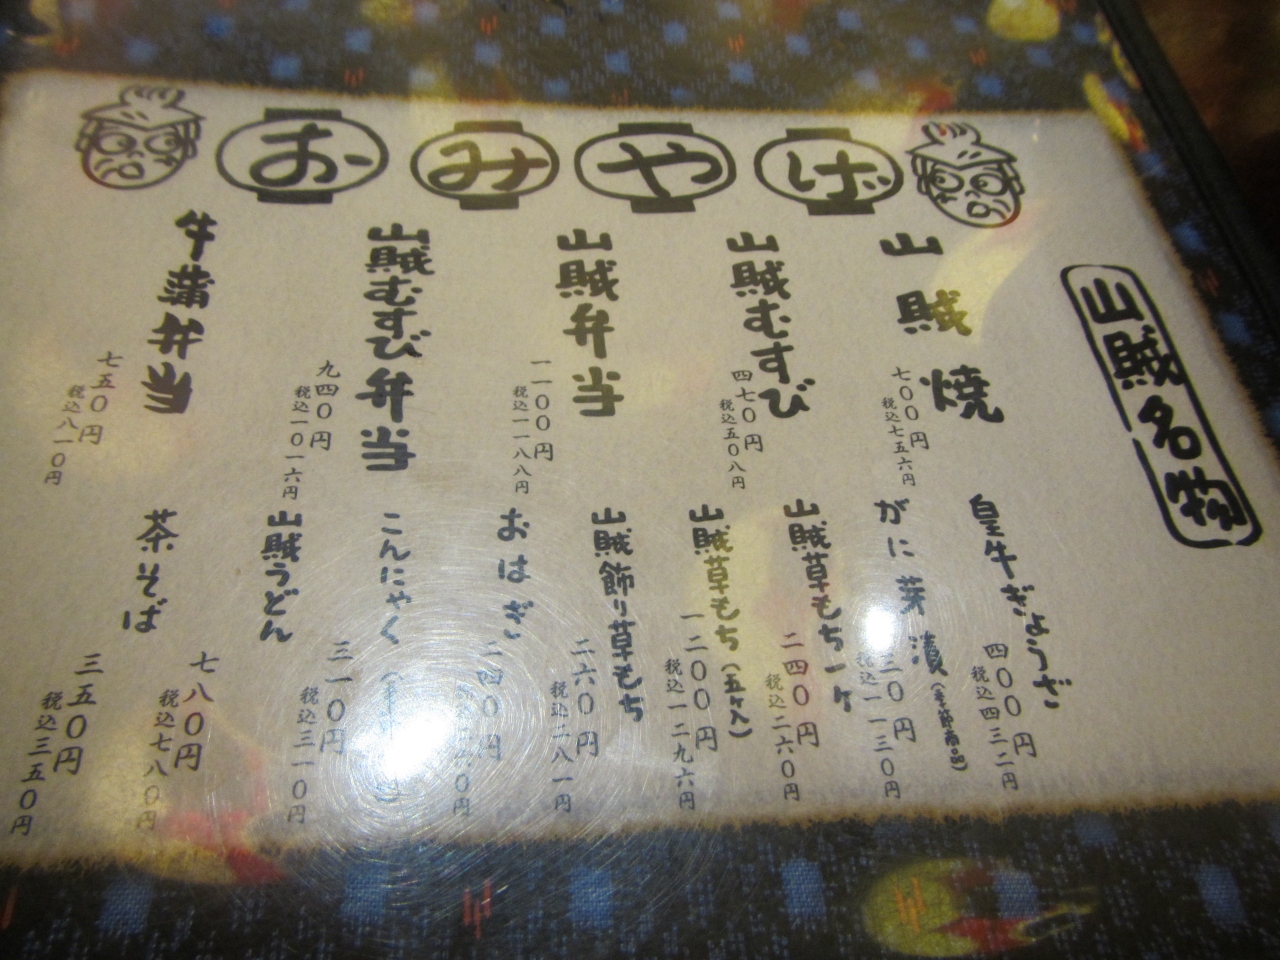 おみやげ
山賊名物
山賊焼
七〇〇円
税込七五六円
山賊むすび
四七〇円
税込五〇八円
山賊弁当
一一〇〇円
税込一一八八円
山賊むすび弁当
九四〇円
税込一〇一六円
牛蒲弁当
七五〇円
税込八一〇円
皇牛ぎょうざ
四〇〇円
税込四三二円
がに芽漬(季節商品)
税込一一三〇円
山賊草もち一ヶ
二四〇円
税込二六〇円
山賊草もち(五ヶ入)
一二〇〇円
税込一二九六円
山賊飾り草もち
二六〇円
税込二八一円
おはぎ
二四〇円
こんにゃく
三一〇円
税込三一〇円
山賊うどん
七八〇円
税込七八〇円
茶そば
三五〇円
税込三五〇円